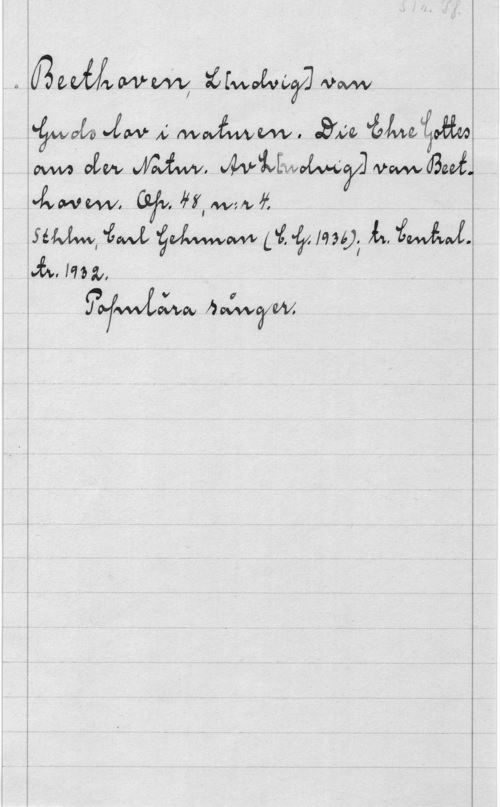 Beethoven, L[udvig] van
Guds lov i naturen. Die Ehre Gottes
aus der Natur. Av L[udvig] van Beet-
hoven. Op. 48, n:r 4.
Sthlm, Carl Gehrman (C. G. 1936); tr. Central-
tr. 1932.
Populära sånger.